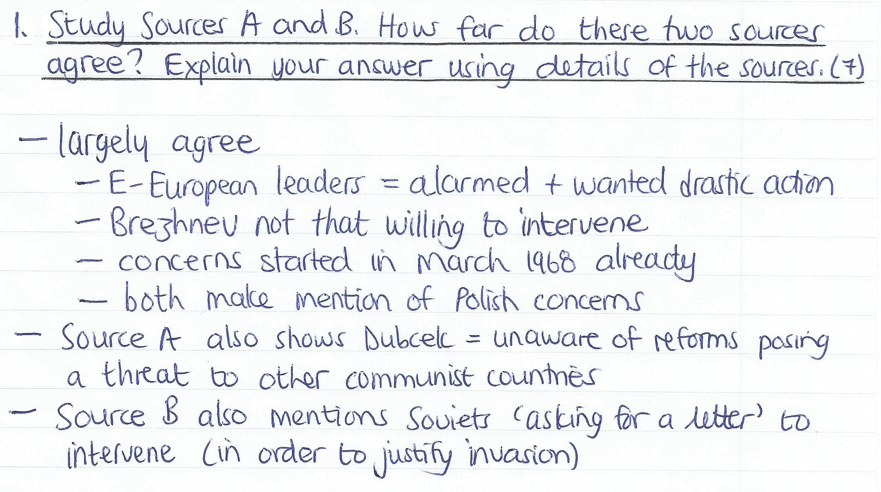 1. Study Sources A and B. How far do these two sources
agree? Explain your answer using details of the sources. (7)
– largely agree
– E-European leaders = alarmed + wanted drastic action
– Brezhnev not that willing to intervene
– concerns started in March 1968 already
– both make mention of Polish concerns
– Source A also shows Dubcek = unaware of reforms posing
a threat to other communist countries
– Source B also mentions Soviets 'asking for a letter' to
intervene (in order to justify invasion)